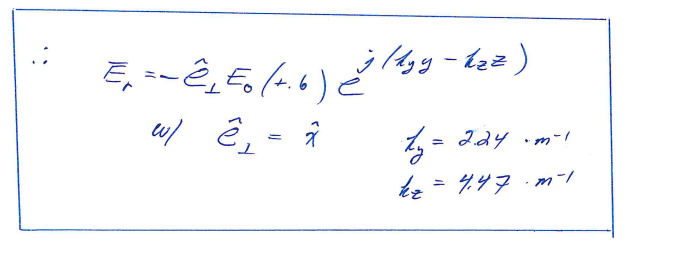 ∴ E̅ᵣ = - ê⊥ E₀ (+.6) e^j(kyy - kzz)
w/ ê⊥ = x̂ ky = 2.24 · m⁻¹
kz = 4.47 · m⁻¹